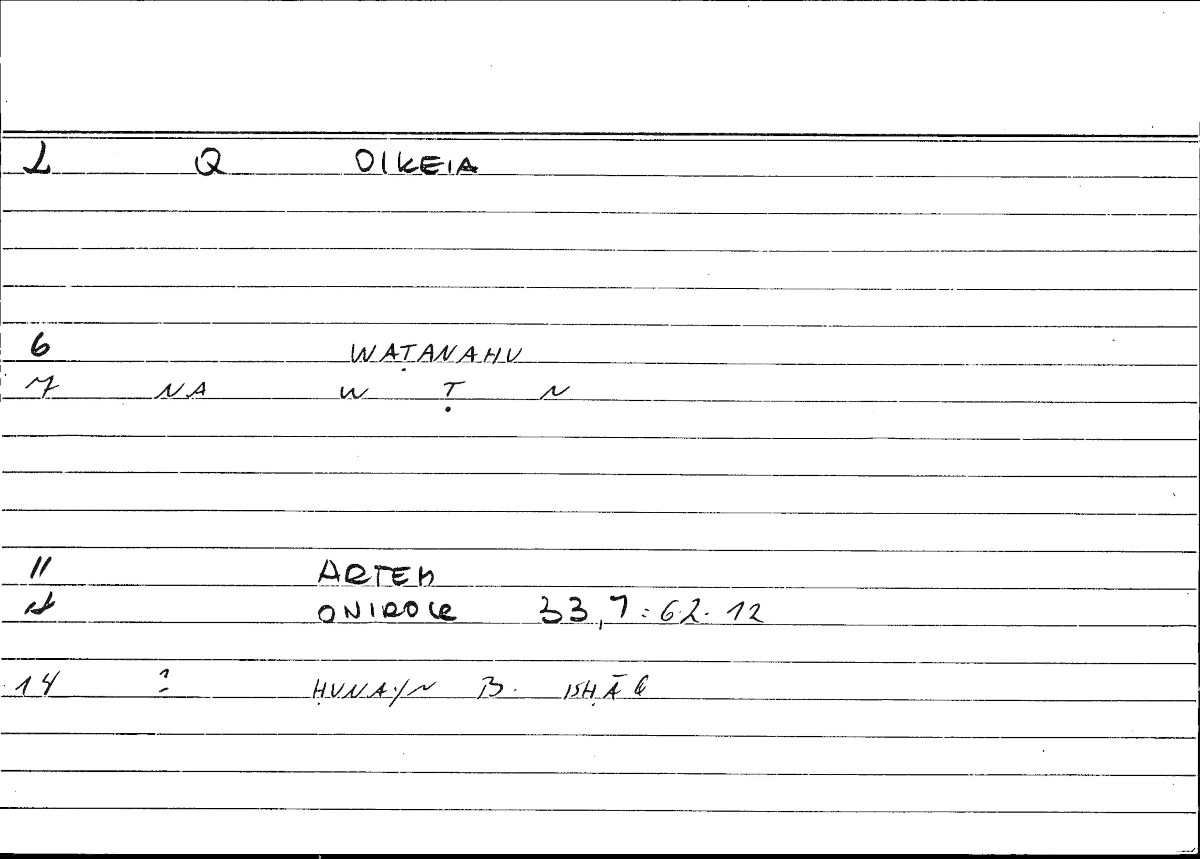 1 Q OIKEIA
6 WAṬANAHU
7 NA W Ṭ N
11 ARTEM
ONIROCR 33,7:62.12
14 ? ḤUNAYN B. ISḤĀQ